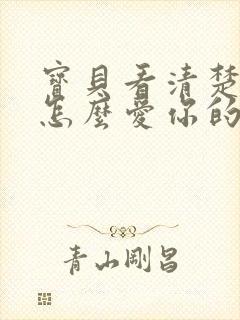 寶貝看清楚
怎麼愛你的
青山剛昌